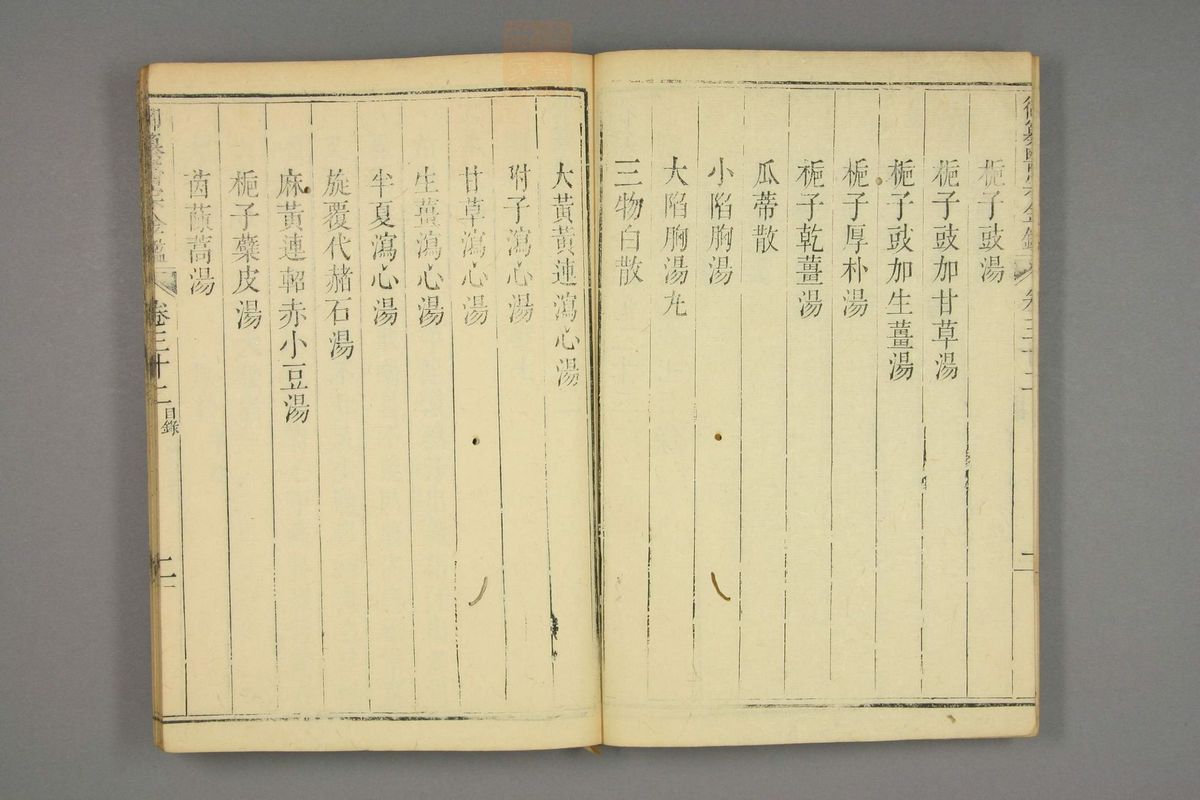 梔子豉湯
梔子豉加甘草湯
梔子豉加生薑湯
梔子厚朴湯
梔子乾薑湯
瓜蔕散
小陷胸湯
大陷胸湯丸
三物白散
大黃黃連瀉心湯
附子瀉心湯
甘草瀉心湯
生薑瀉心湯
半夏瀉心湯
旋覆代赭石湯
麻黃連軺赤小豆湯
梔子蘗皮湯
茵蔯蒿湯
卷三十二
目錄
二